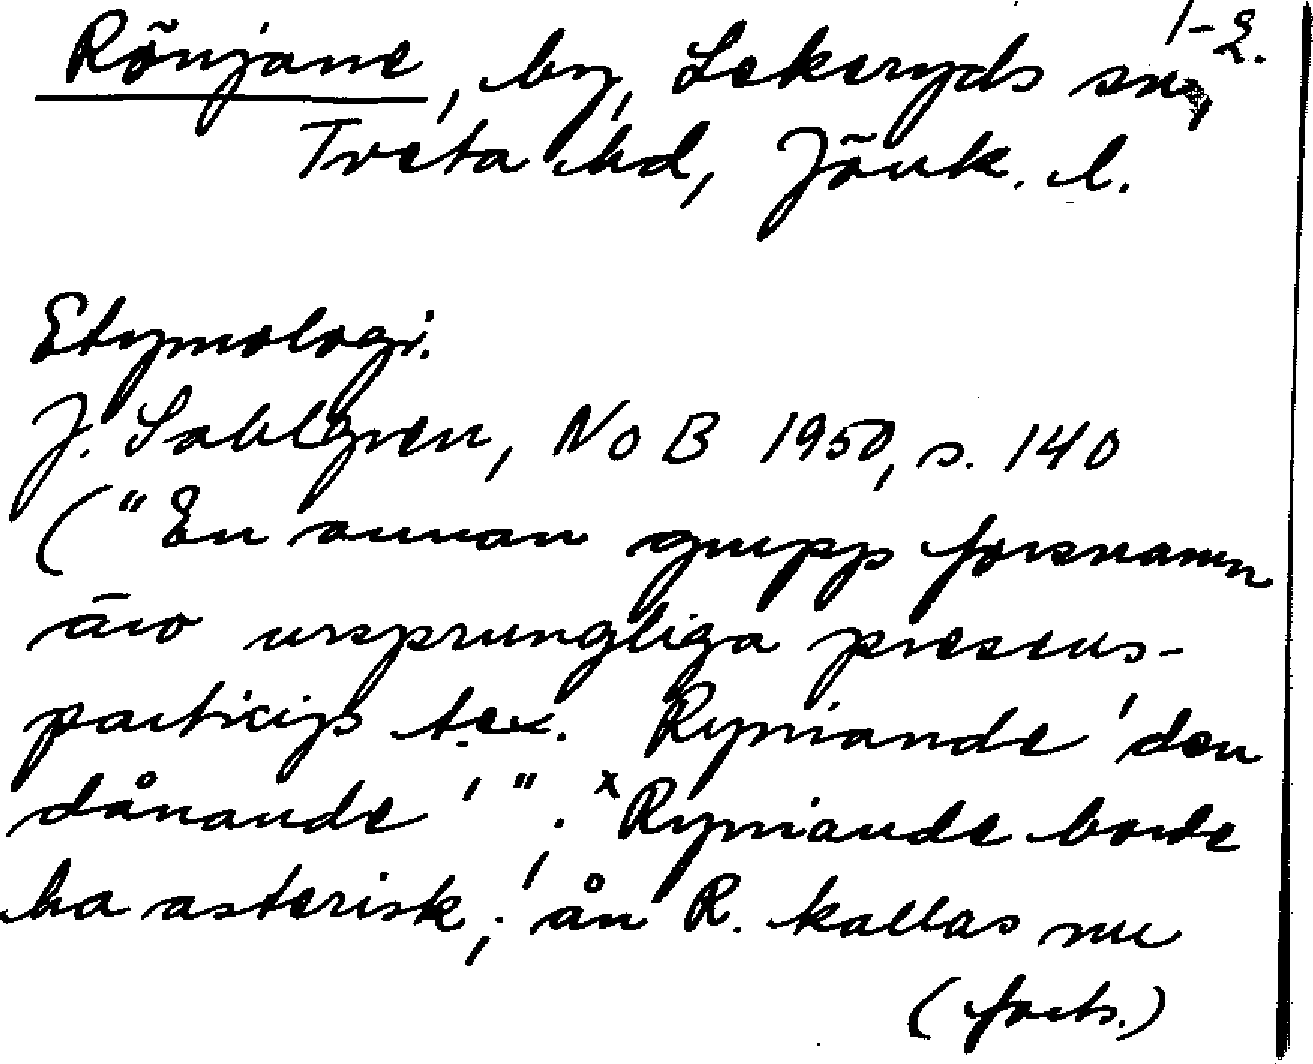 1-2.
Rönjane, by, Lekeryds sn,
Tveta hd, Jönk. l.
Etymologi.
J. Sahlgren, NoB 1950, s. 140
("En annan grupp forsnamn
äro ursprungliga presens-
particip t.ex. Rymiande 'den
dånande'". ˣRymiande borde
ha asterisk; ån R. kallas nu
(forts.)